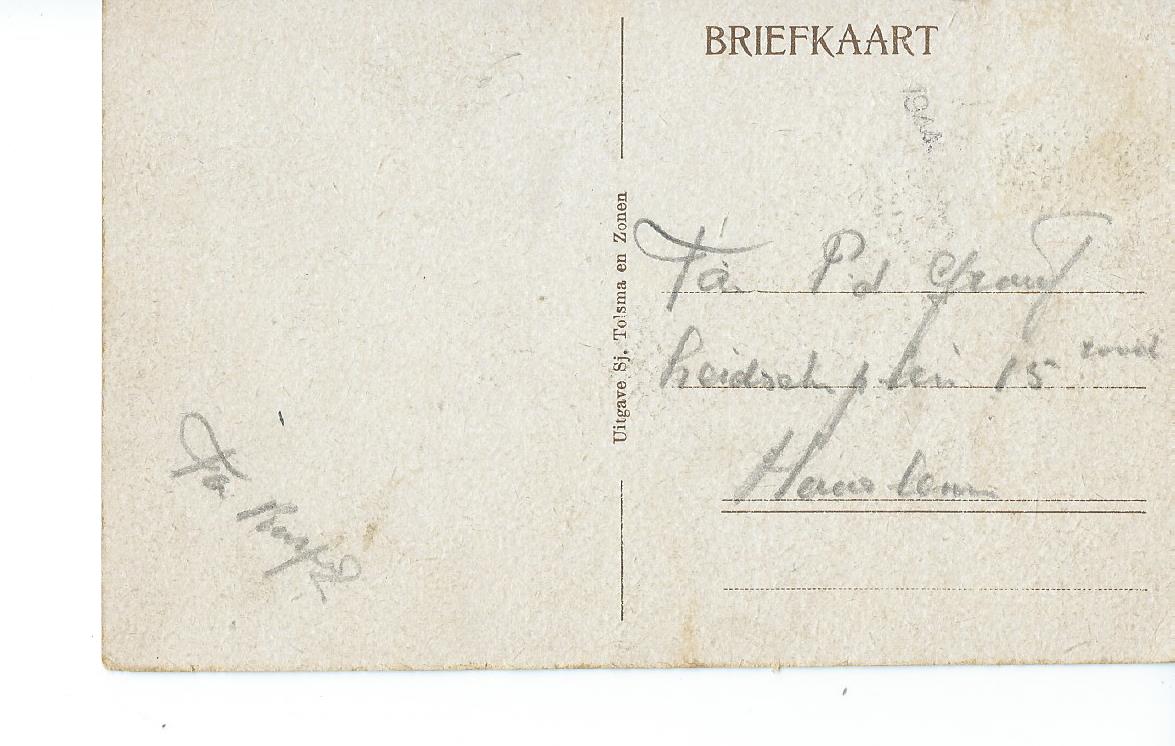 BRIEFKAART
Uitgave Sj. Tolsma en Zonen
Fa P.d Graaf
Leidsch plein 15 rood
Haarlem
Fa